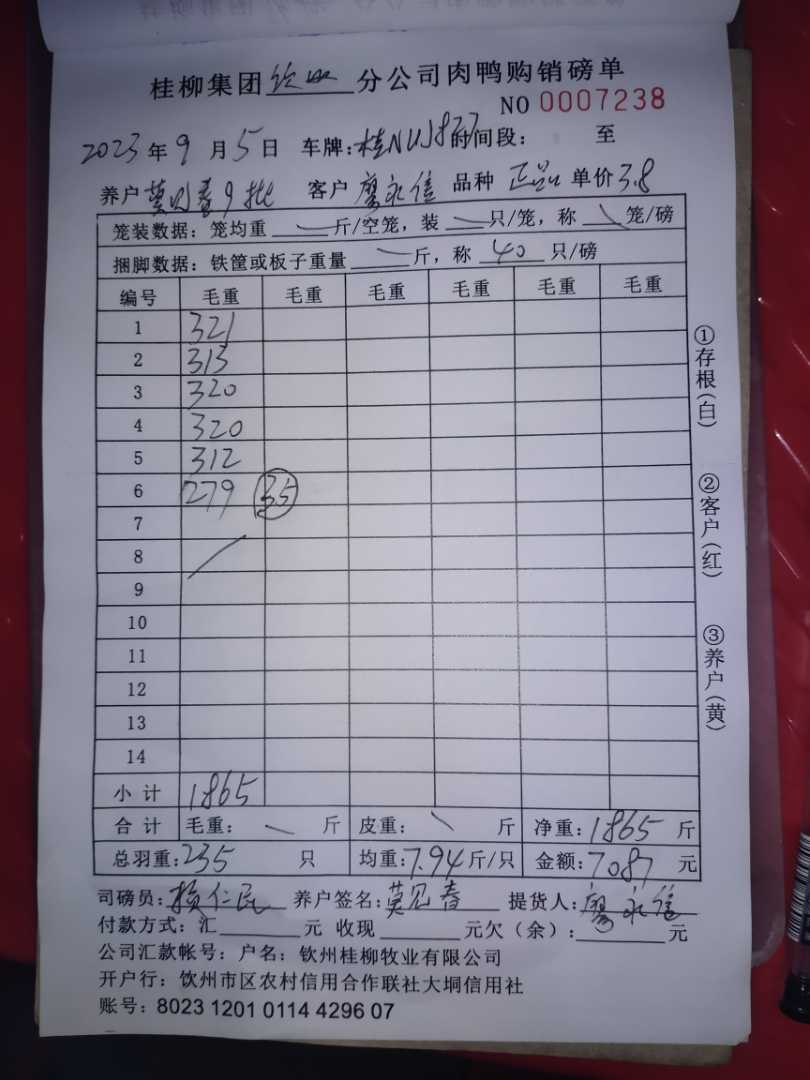 桂柳集团钦州分公司肉鸭购销磅单
NO 0007238
2023年9月5日 车牌:桂NUJ877 时间段: 至
养户莫见春9批 客户廖永信 品种 正品 单价3.8
笼装数据:笼均重 斤/空笼,装 只/笼,称 笼/磅
捆脚数据:铁筐或板子重量 斤,称 40 只/磅
编号 毛重 毛重 毛重 毛重 毛重 毛重
1 321
2 313
3 320
4 320
5 312
6 279 35
7
8
9
10
11
12
13
14
小计 1865
合计 毛重: 斤 皮重: 斤 净重:1865斤
总羽重:235 只 均重:7.94斤/只 金额:7087元
司磅员:杨仁民 养户签名:莫见春 提货人:廖永信
付款方式:汇 元 收现 元欠(余): 元
公司汇款帐号:户名:钦州桂柳牧业有限公司
开户行:钦州市区农村信用合作联社大垌信用社
账号:8023 1201 0114 4296 07
①存根(白)
②客户(红)
③养户(黄)